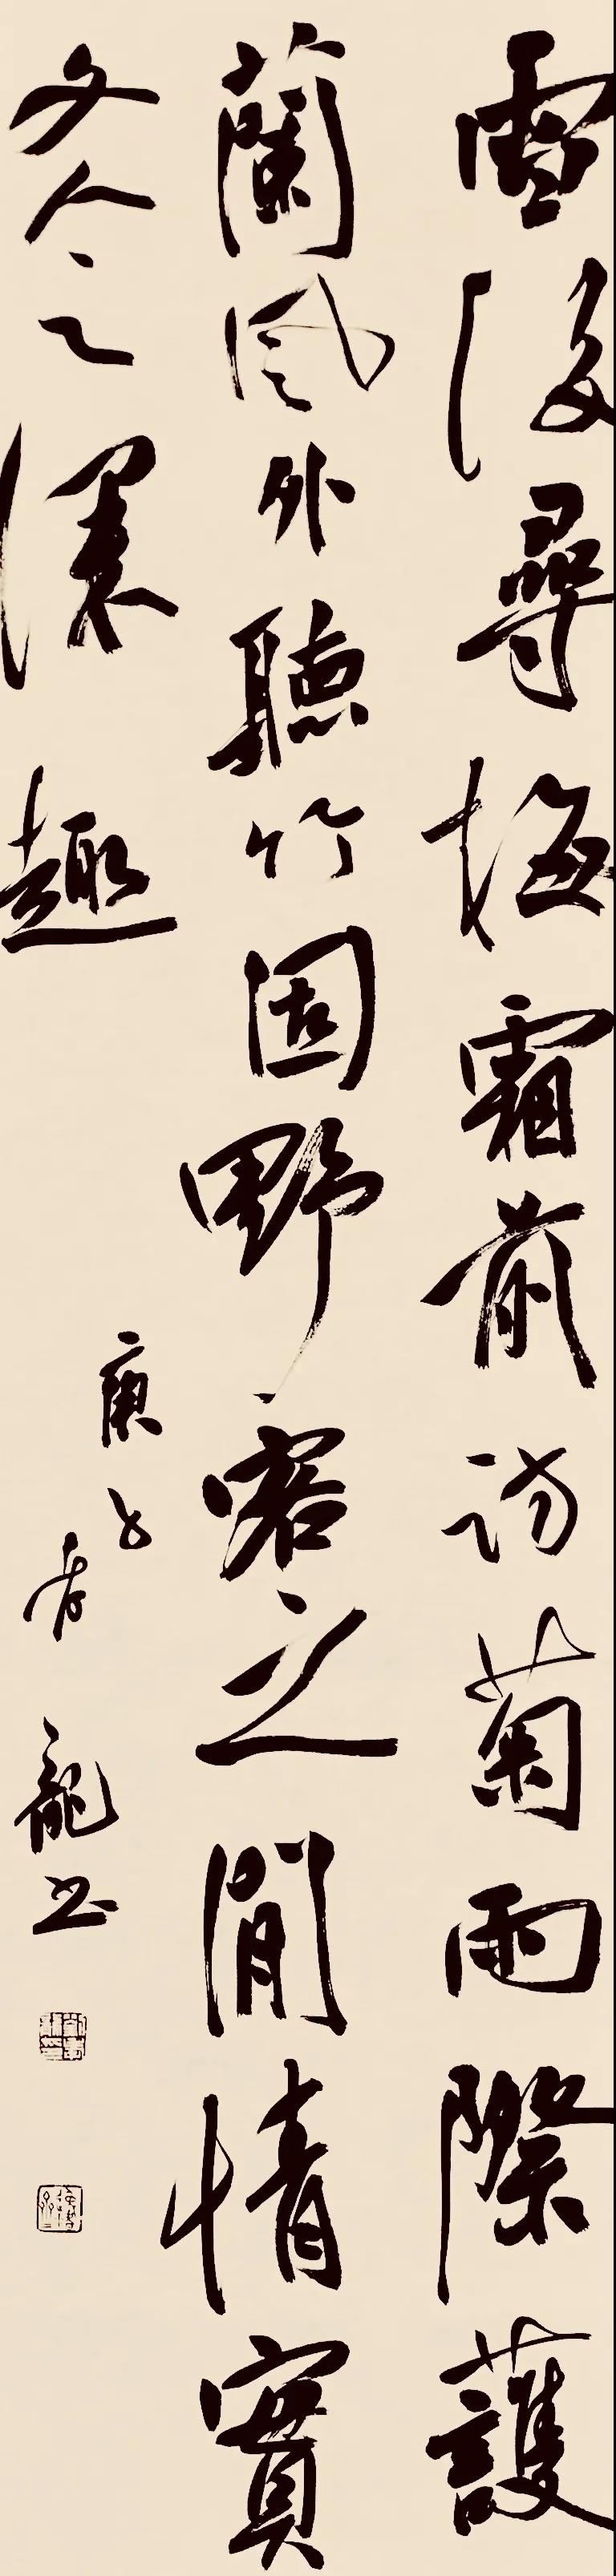 雪後尋梅霜前訪菊雨際護
蘭風外聽竹固野客之閒情實
文人之深趣
庚子春龍书